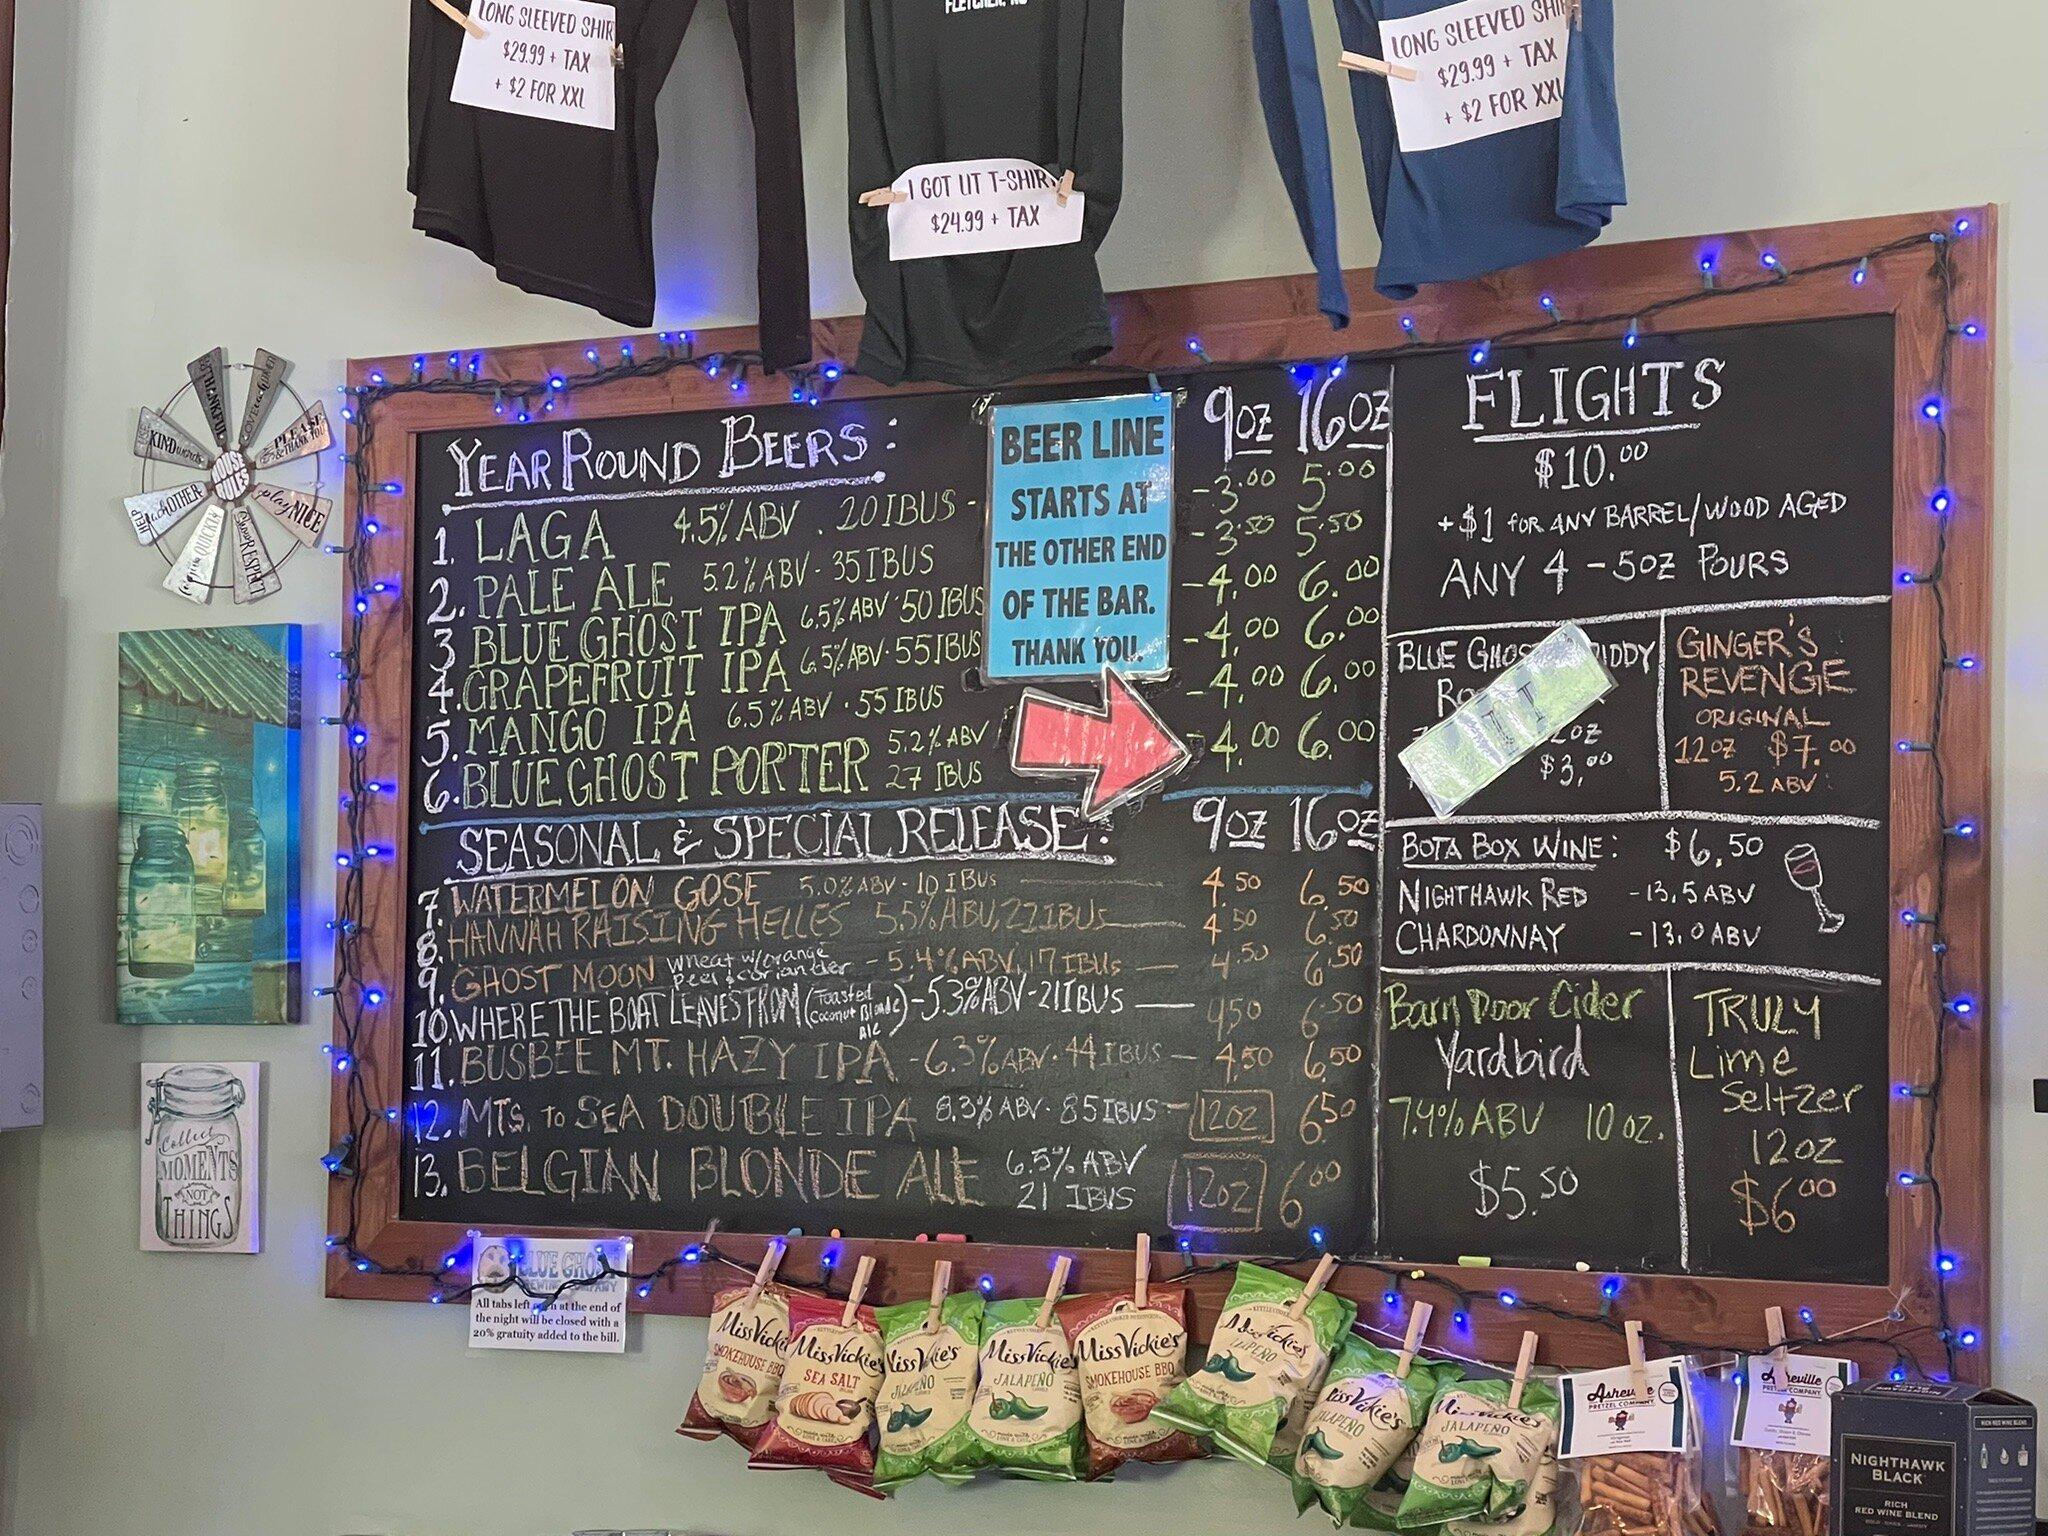 LONG SLEEVED SHIR
$29.99 + TAX
+ $2 FOR XXL
FLETCHER, NC
I GOT LIT T-SHIRT
$24.99 + TAX
LONG SLEEVED SHIR
$29.99 + TAX
+ $2 FOR XXL
YEAR ROUND BEERS: 9oz 16oz
1. LAGA 4.5% ABV . 20 IBUS - - 3.00 5.00
2. PALE ALE 5.2% ABV - 35 IBUS - 3.50 5.50
3 BLUE GHOST IPA 6.5% ABV · 50 IBUS - 4.00 6.00
4. GRAPEFRUIT IPA 6.5% ABV · 55 IBUS - 4.00 6.00
5. MANGO IPA 6.5% ABV · 55 IBUS - 4.00 6.00
6. BLUE GHOST PORTER 5.2% ABV 27 IBUS - 4.00 6.00
BEER LINE
STARTS AT
THE OTHER END
OF THE BAR.
THANK YOU.
SEASONAL & SPECIAL RELEASE: 9oz 16oz
7. WATERMELON GOSE 5.0% ABV - 10 IBUS 4.50 6.50
8. HANNAH RAISING HELLES 5.5% ABV, 22 IBUS 4.50 6.50
9. GHOST MOON wheat w/orange peel & coriander - 5.4% ABV, 17 IBUS 4.50 6.50
10. WHERE THE BOAT LEAVES FROM (Toasted Coconut Blonde Ale) - 5.3% ABV - 21 IBUS 4.50 6.50
11. BUSBEE MT. HAZY IPA - 6.3% ABV · 44 IBUS - 4.50 6.50
12. MTS. to SEA DOUBLE IPA 8.3% ABV · 85 IBUS - 12oz 6.50
13. BELGIAN BLONDE ALE 6.5% ABV 21 IBUS 12oz 6.00
FLIGHTS
$10.00
+ $1 for ANY BARREL/WOOD AGED
ANY 4 - 5oz POURS
BLUE GHOST
$3.00
GINGER'S
REVENGE
ORIGINAL
12oz $7.00
5.2 ABV
BOTA BOX WINE: $6.50
NIGHTHAWK RED - 13.5 ABV
CHARDONNAY - 13.0 ABV
Barn Door Cider
Yardbird
7.4% ABV 10 oz.
$5.50
TRULY
Lime
Seltzer
12oz
$6.00
HOUSE
RULES
be THANKFUL
LOVE each other
say PLEASE
& THANK YOU
play NICE
Show RESPECT
forgive QUICKLY
HELP each OTHER
use KIND words
Collect
MOMENTS
NOT
THINGS
BLUE GHOST
BREWING COMPANY
All tabs left open at the end of
the night will be closed with a
20% gratuity added to the bill.
Miss Vickie's
SMOKEHOUSE BBQ
Miss Vickie's
SEA SALT
Miss Vickie's
JALAPEÑO
Miss Vickie's
JALAPEÑO
Miss Vickie's
SMOKEHOUSE BBQ
Miss Vickie's
JALAPEÑO
Miss Vickie's
JALAPEÑO
Miss Vickie's
JALAPEÑO
Asheville
PRETZEL COMPANY
Asheville
PRETZEL COMPANY
RICH RED WINE BLEND
NIGHTHAWK
BLACK
RICH
RED WINE BLEND